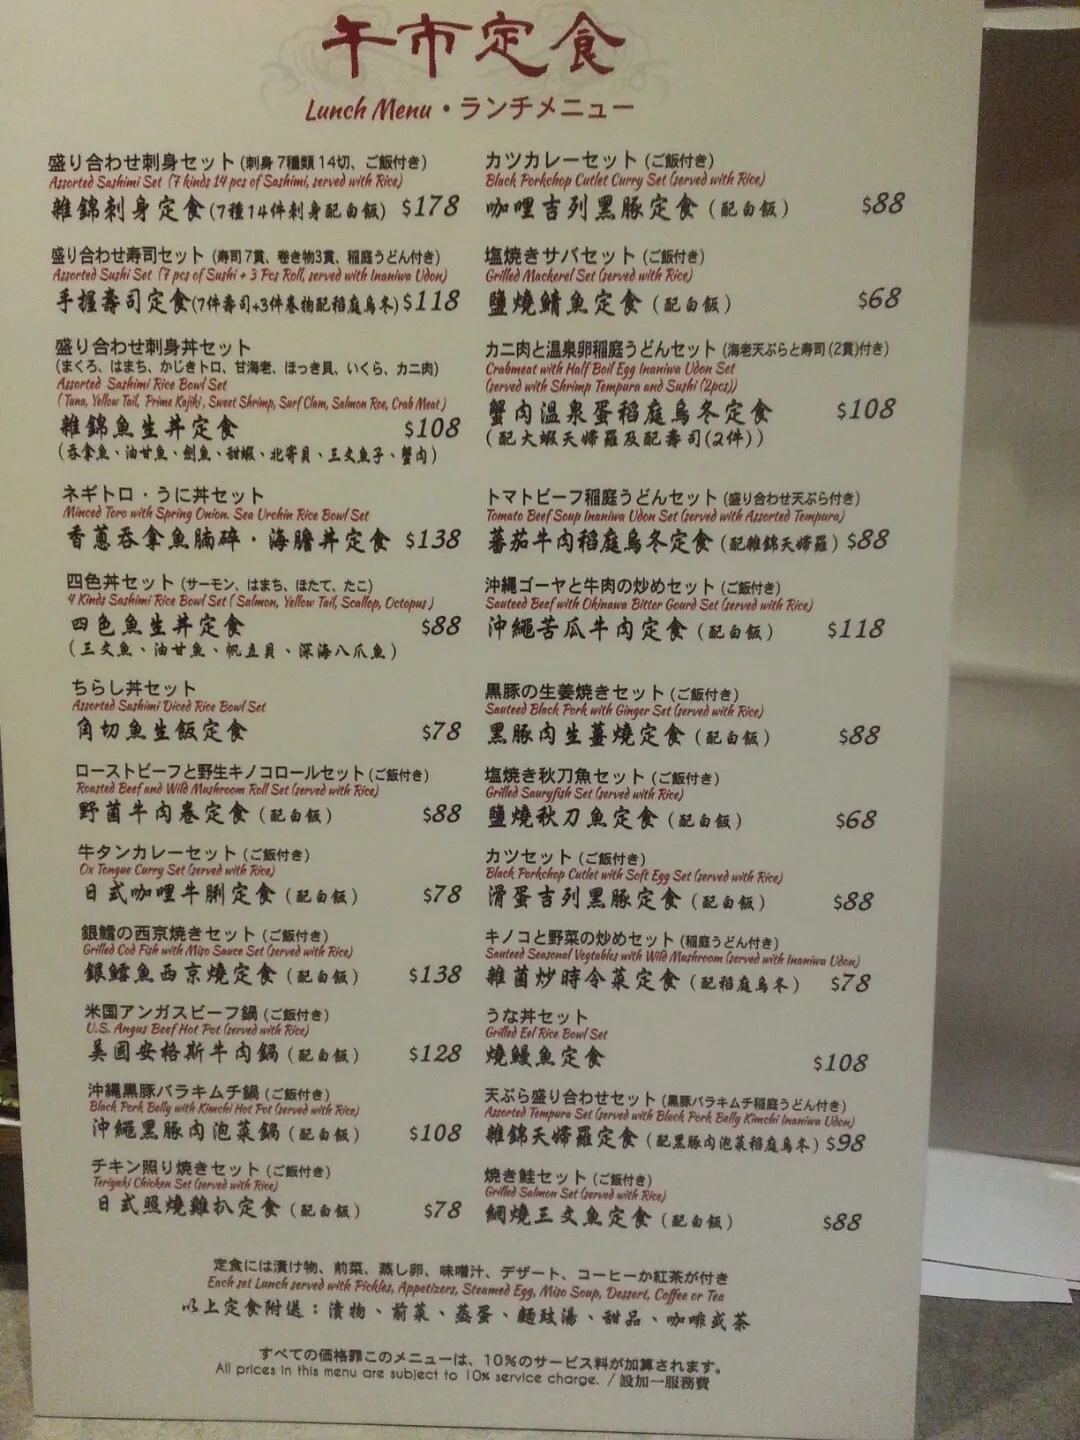 午市定食
Lunch Menu・ランチメニュー
盛り合わせ刺身セット (刺身 7種類 14切、ご飯付き)
Assorted Sashimi Set (7 kinds 14 pcs of Sashimi, served with Rice)
雜錦刺身定食(7種14件刺身配白飯) $178
盛り合わせ寿司セット (寿司 7貫、巻き物3貫、稲庭うどん付き)
Assorted Sushi Set (7 pcs of Sushi + 3 Pcs Roll, served with Inaniwa Udon)
手握壽司定食(7件壽司+3件卷物配稻庭烏冬) $118
盛り合わせ刺身丼セット
(まぐろ、はまち、かじきトロ、甘海老、ほっき貝、いくら、カニ肉)
Assorted Sashimi Rice Bowl Set
(Tuna, Yellow Tail, Prime Kajiki, Sweet Shrimp, Surf Clam, Salmon Roe, Crab Meat)
雜錦魚生丼定食 $108
(吞拿魚、油甘魚、劍魚、甜蝦、北寄貝、三文魚子、蟹肉)
ネギトロ・うに丼セット
Minced Toro with Spring Onion. Sea Urchin Rice Bowl Set
香蔥吞拿魚腩碎・海膽丼定食 $138
四色丼セット (サーモン、はまち、ほたて、たこ)
4 Kinds Sashimi Rice Bowl Set ( Salmon, Yellow Tail, Scallop, Octopus )
四色魚生丼定食 $88
(三文魚、油甘魚、帆立貝、深海八爪魚)
ちらし丼セット
Assorted Sashimi Diced Rice Bowl Set
角切魚生飯定食 $78
ローストビーフと野生キノコロールセット (ご飯付き)
Roasted Beef and Wild Mushroom Roll Set (served with Rice)
野菌牛肉卷定食 (配白飯) $88
牛タンカレーセット (ご飯付き)
Ox Tongue Curry Set (served with Rice)
日式咖哩牛脷定食 (配白飯) $78
銀鱈の西京焼きセット (ご飯付き)
Grilled Cod Fish with Miso Sauce Set (served with Rice)
銀鱈魚西京燒定食 (配白飯) $138
米国アンガスビーフ鍋 (ご飯付き)
U.S. Angus Beef Hot Pot (served with Rice)
美國安格斯牛肉鍋 (配白飯) $128
沖縄黒豚バラキムチ鍋 (ご飯付き)
Black Pork Belly with Kimchi Hot Pot (served with Rice)
沖繩黑豚肉泡菜鍋 (配白飯) $108
チキン照り焼きセット (ご飯付き)
Teriyaki Chicken Set (served with Rice)
日式照燒雞扒定食 (配白飯) $78
カツカレーセット (ご飯付き)
Black Porkchop Cutlet Curry Set (served with Rice)
咖哩吉列黑豚定食 (配白飯) $88
塩焼きサバセット (ご飯付き)
Grilled Mackerel Set (served with Rice)
鹽燒鯖魚定食 (配白飯) $68
カニ肉と温泉卵稲庭うどんセット (海老天ぷらと寿司 (2貫)付き)
Crabmeat with Half Boil Egg Inaniwa Udon Set
(served with Shrimp Tempura and Sushi (2pcs))
蟹肉温泉蛋稻庭烏冬定食 $108
(配大蝦天婦羅及配壽司(2件))
トマトビーフ稲庭うどんセット (盛り合わせ天ぷら付き)
Tomato Beef Soup Inaniwa Udon Set (served with Assorted Tempura)
蕃茄牛肉稻庭烏冬定食 (配雜錦天婦羅) $88
沖縄ゴーヤと牛肉の炒めセット (ご飯付き)
Sauteed Beef with Okinawa Bitter Gourd Set (served with Rice)
沖繩苦瓜牛肉定食 (配白飯) $118
黒豚の生姜焼きセット (ご飯付き)
Sauteed Black Pork with Ginger Set (served with Rice)
黑豚肉生薑燒定食 (配白飯) $88
塩焼き秋刀魚セット (ご飯付き)
Grilled Sauryfish Set (served with Rice)
鹽燒秋刀魚定食 (配白飯) $68
カツセット (ご飯付き)
Black Porkchop Cutlet with Soft Egg Set (served with Rice)
滑蛋吉列黑豚定食 (配白飯) $88
キノコと野菜の炒めセット (稲庭うどん付き)
Sauteed Seasonal Vegtables with Wild Mushroom (served with Inaniwa Udon)
雜菌炒時令菜定食 (配稻庭烏冬) $78
うな丼セット
Grilled Eel Rice Bowl Set
燒鰻魚定食 $108
天ぷら盛り合わせセット (黒豚バラキムチ稲庭うどん付き)
Assorted Tempura Set (served with Black Pork Belly Kimchi Inaniwa Udon)
雜錦天婦羅定食 (配黑豚肉泡菜稻庭烏冬) $98
焼き鮭セット (ご飯付き)
Grilled Salmon Set (served with Rice)
網燒三文魚定食 (配白飯) $88
定食には漬け物、前菜、蒸し卵、味噌汁、デザート、コーヒーか紅茶が付き
Each set Lunch served with Pickles, Appetizers, Steamed Egg, Miso Soup, Dessert, Coffee or Tea
以上定食附送：漬物、前菜、蒸蛋、麵豉湯、甜品、咖啡或茶
すべての価格罪このメニューは、10%のサービス料が加算されます。
All prices in this menu are subject to 10% service charge. / 設加一服務費